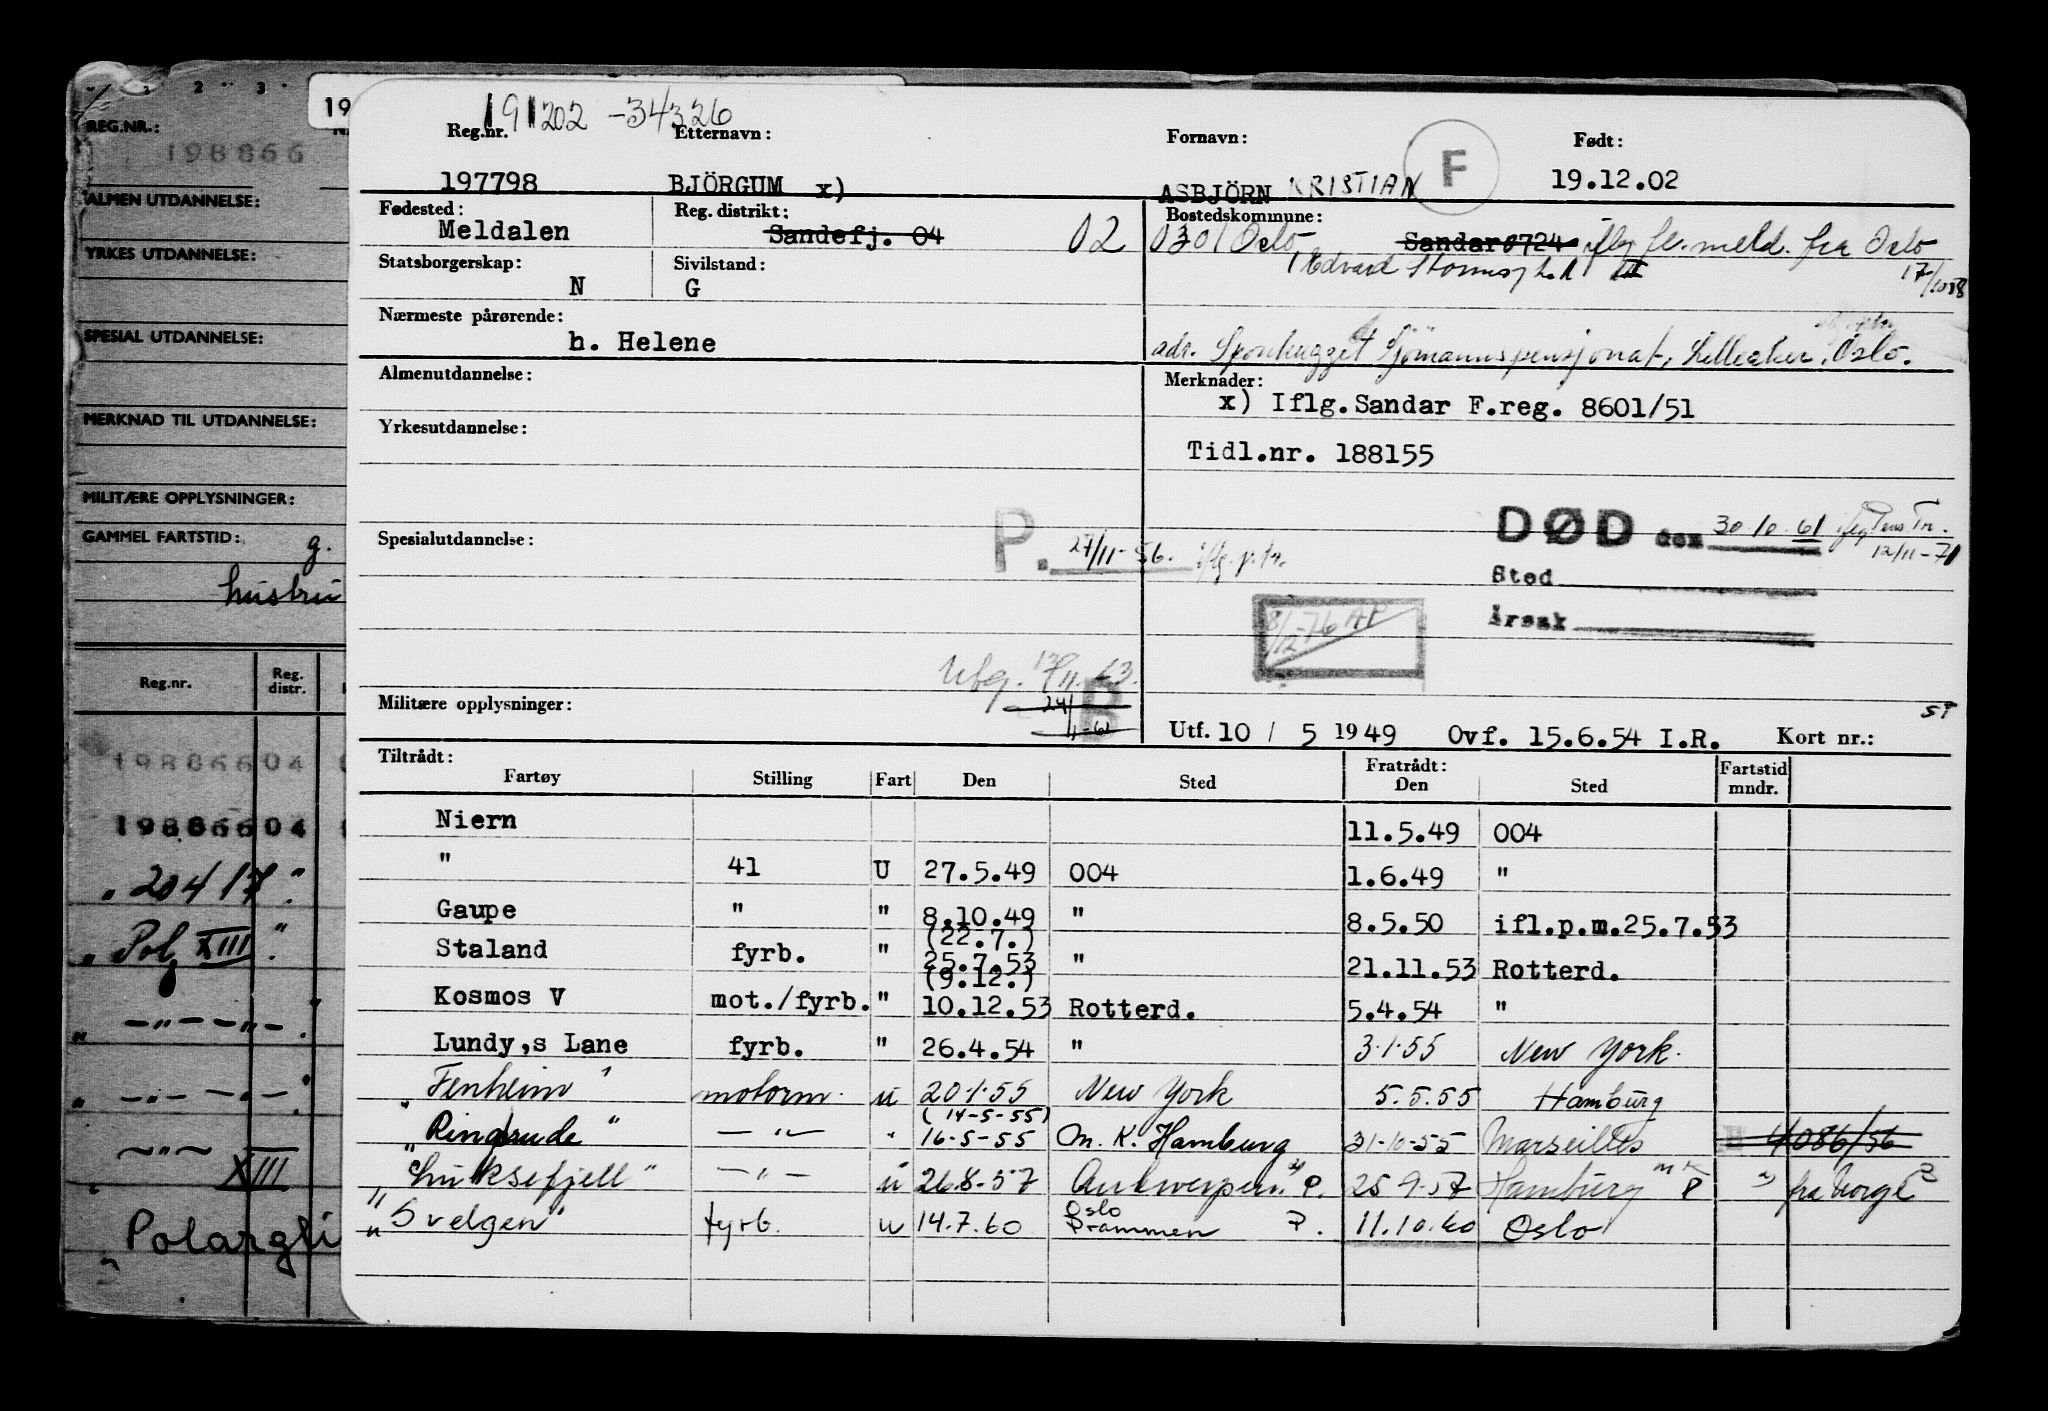 2 3
REG.NR.:
198866
ALMEN UTDANNELSE:
YRKES UTDANNELSE:
SPESIAL UTDANNELSE:
MERKNAD TIL UTDANNELSE:
MILITÆRE OPPLYSNINGER:
GAMMEL FARTSTID: g.
hustru
Reg.nr. Reg. distr.
19886604
19886604
" 20417. "
" Pol XIII. "
" — " — " — .
" — " — " — .
— " — XIII
" Polargli
19
191202 - 34326
Reg.nr. Etternavn: Fornavn: F Født:
197798 BJÖRGUM x) ASBJÖRN KRISTIAN 19.12.02
Fødested: Reg. distrikt: Bostedskommune:
Meldalen Sandefj. 04 02 0301 Oslo Sandar 0724 iflg fl. meld. fra Oslo
17/10 58
Edvard Storms III
Statsborgerskap: Sivilstand:
N G
Nærmeste pårørende:
h. Helene
adr. Sponhugget Sjömannspensjonat, Lilleaker, Oslo.
Almenutdannelse: Merknader:
x) Iflg. Sandar F.reg. 8601/51
Yrkesutdannelse:
Tidl.nr. 188155
Spesialutdannelse: P. 27/11-56. iflg. p.tr.
DØD den 30.10.61 iflg Pens Tr. 12/11-71
Sted
Årsak
8/12-76 AP
Utg. 13/11.63.
24/11-61
B
Militære opplysninger:
ST
Utf. 10 / 5 1949 Ovf. 15.6.54 I.R. Kort nr.:
Tiltrådt: Fratrådt: Fartstid
Fartøy Stilling Fart Den Sted Den Sted mndr.
Niern 11.5.49 004
" 41 U 27.5.49 004 1.6.49 "
Gaupe " " 8.10.49 " 8.5.50 ifl.p.m.25.7.53
(22.7.)
Staland fyrb. " 25.7.53 " 21.11.53 Rotterd.
(9.12.)
Kosmos V mot./fyrb. " 10.12.53 Rotterd. 5.4.54 "
Lundy,s Lane fyrb. " 26.4.54 " 3.1.55 New York.
"Fenheim" motorm. u 20.1.55 New York 5.5.55 Hamburg
(14-5-55)
"Ringsude" — " — " 16-5-55 m.k. Hamburg 31-10-55 Marseilles 4086/56
"Luksefjell" — " — u 26.8.57 Antwerpen P. 25.9.57 Hamburg m k P fra Norge
"Svelgen" fyrb. u 14.7.60 Oslo Drammen P. 11.10.60 Oslo